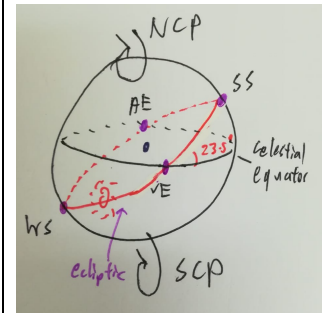 NCP
SS
AE
23.5°
Celestial
equator
VE
WS
ecliptic
SCP